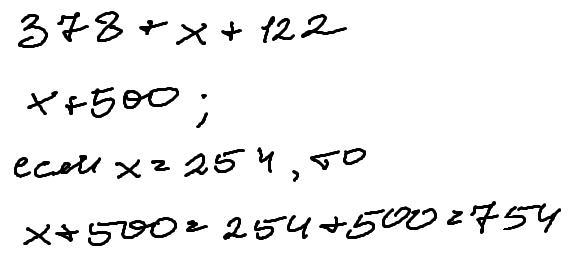 378 + x + 122
x + 500 ;
если x = 254, то
x + 500 = 254 + 500 = 754